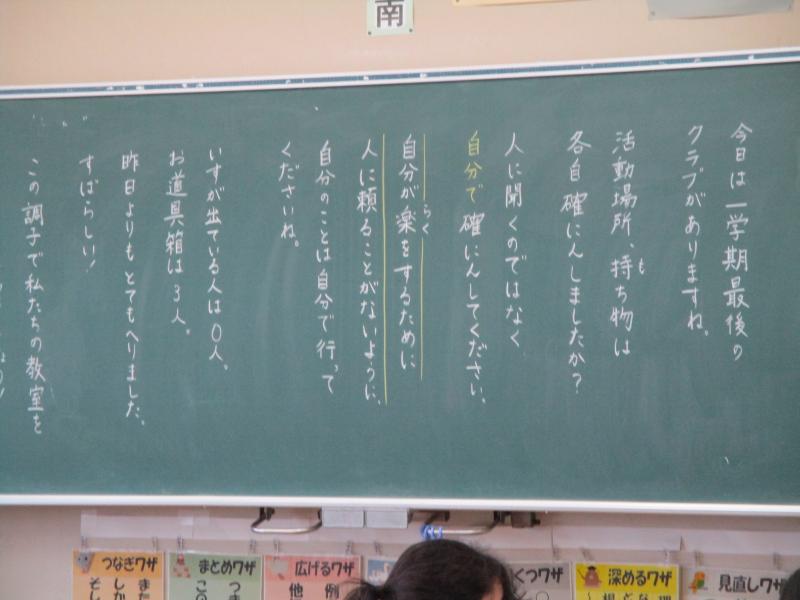 南
今日は一学期最後の
クラブがありますね。
活動場所、持ち物は
も
各自確にんしましたか？
人に聞くのではなく
自分で確にんしてください。
自分が楽をするために
らく
人に頼ることがないように、
自分のことは自分で行って
くださいね。
いすが出ている人は0人。
お道具箱は3人。
昨日よりもとてもへりました。
すばらしい！
この調子で私たちの教室を
つなぎワザ
まとめワザ
広げるワザ
他 例
くワザ
深めるワザ
見直しワザ